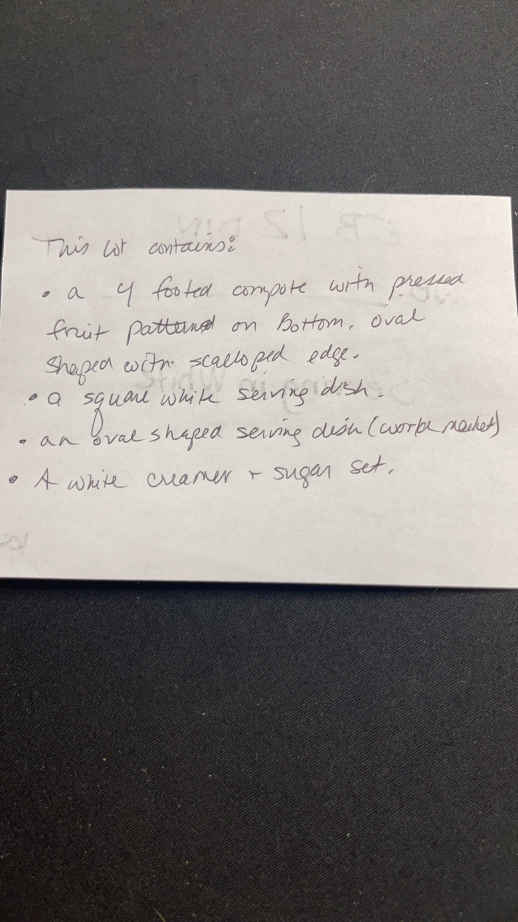 This lot contains:
• a 4 footed compote with pressed
fruit pattern on Bottom. oval
shaped with scalloped edge.
• a square white serving dish.
• an oval shaped serving dish (world market)
• A white creamer + sugar set.